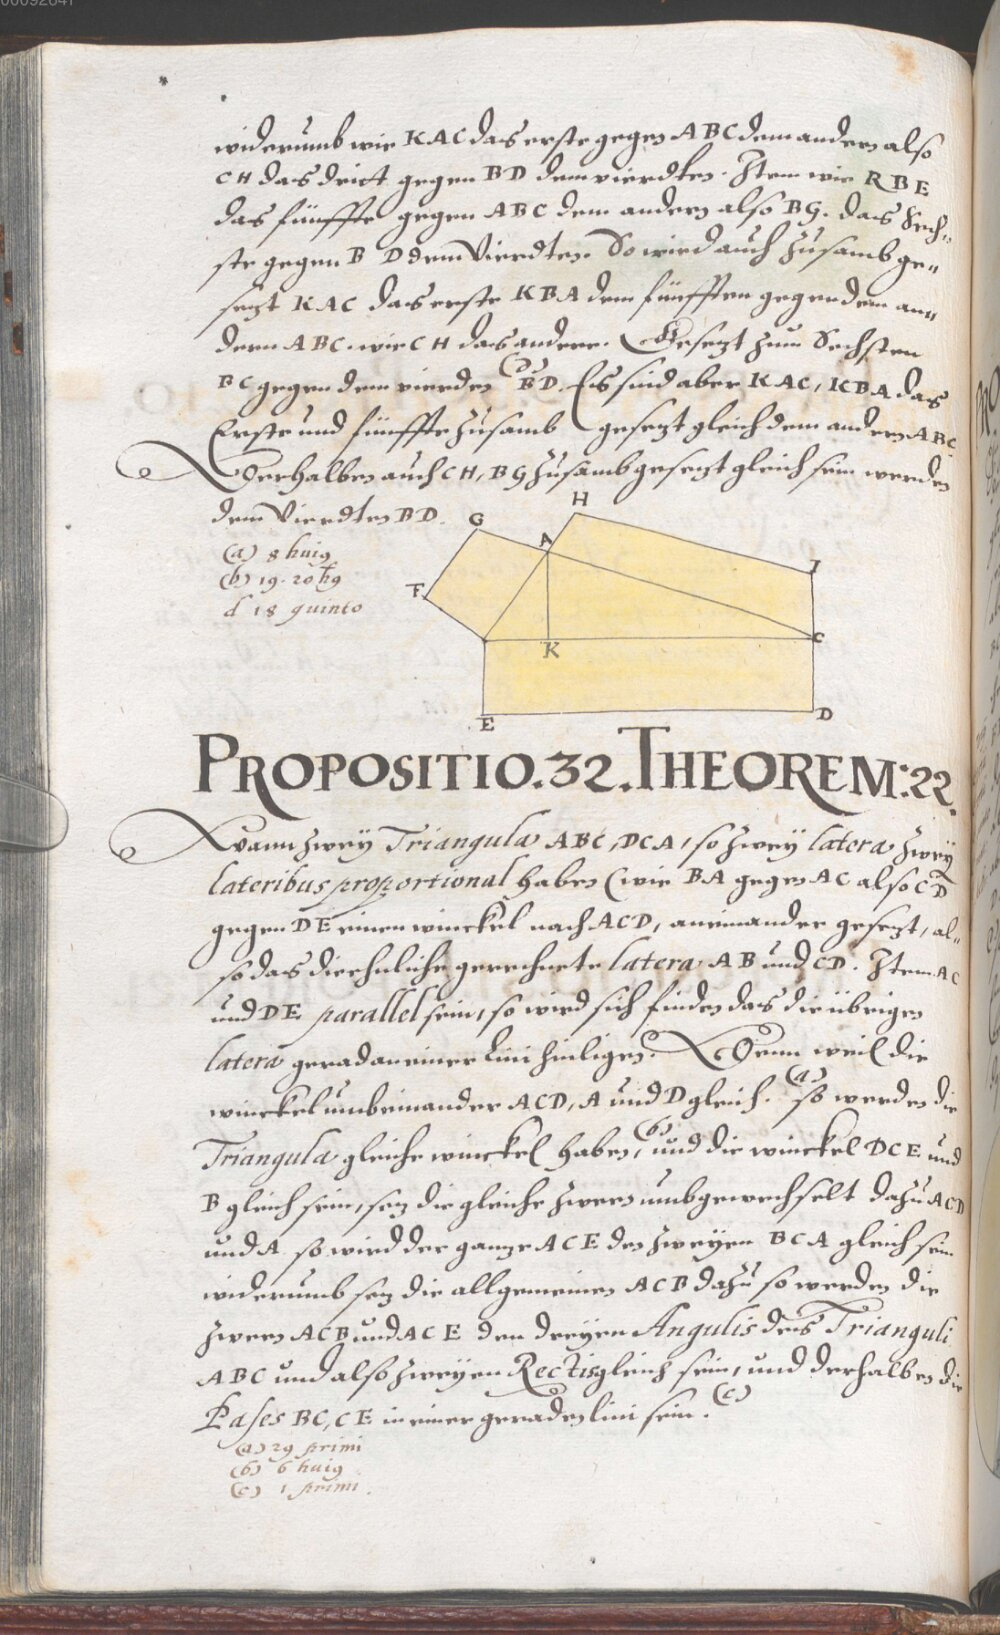 00092847
widerumb wie KAC das erste gegen ABC dem andern also
CH das drict gegen BD dem vierdten. Item wie RBE
das fünffte gegen ABC dem andern also BG. das Sech„
ste gegen B D dem Vierdten. So wird auch zusamb ge„
sezt KAC das erste KBA dem fünfften gegen dem an„
dern ABC. wie CH das andere. Gesezt zum Sechsten
BC gegen dem vierden BD. Eis sind aber KAC, KBA das
Erste und fünffte zusamb gesezt gleich dem andern ABC.
Derhalben auch CH, BG zusamb gesezt gleich sein werden
dem Vierdten BD.
(a) 8 huig
(b) 19. 20
d 18 quinto
G H A I F K C E D
PROPOSITIO. 32. THEOREM: 22.
Wann zweÿ Triangula ABC, DCA, so zweÿ latera zweÿ
lateribus proportional haben (wie BA gegen AC also CD
gegen DE einen winckel nach ACD, aneinander gesezt, al„
so das die ehnliche gerechnete latera AB und CD. Item AC
und DE parallel sein, so wird sich finden das die übrigen
latera gerad an einer Lini hin ligen. Denn weil die
winckel umb einander ACD, A und D gleich. (a) so werden die
Triangula gleiche winckel haben, (b) und die winckel DCE und
B gleich sein, sez die gleiche zween umbgewechselt dazu ACD
und A so wird der ganze ACE den zweÿen BCA gleich sein
widerumb sez die allgemeinen ACB dazu so werden die
zween ACB und ACE den dreÿen Angulis des Trianguli
ABC und also zweÿen Rectis gleich sein, und derhalben die
Bases BC, CE in einer geraden lini sein. (c)
(a) 29 primi
(b) 6 huig
(c) 1 primi.